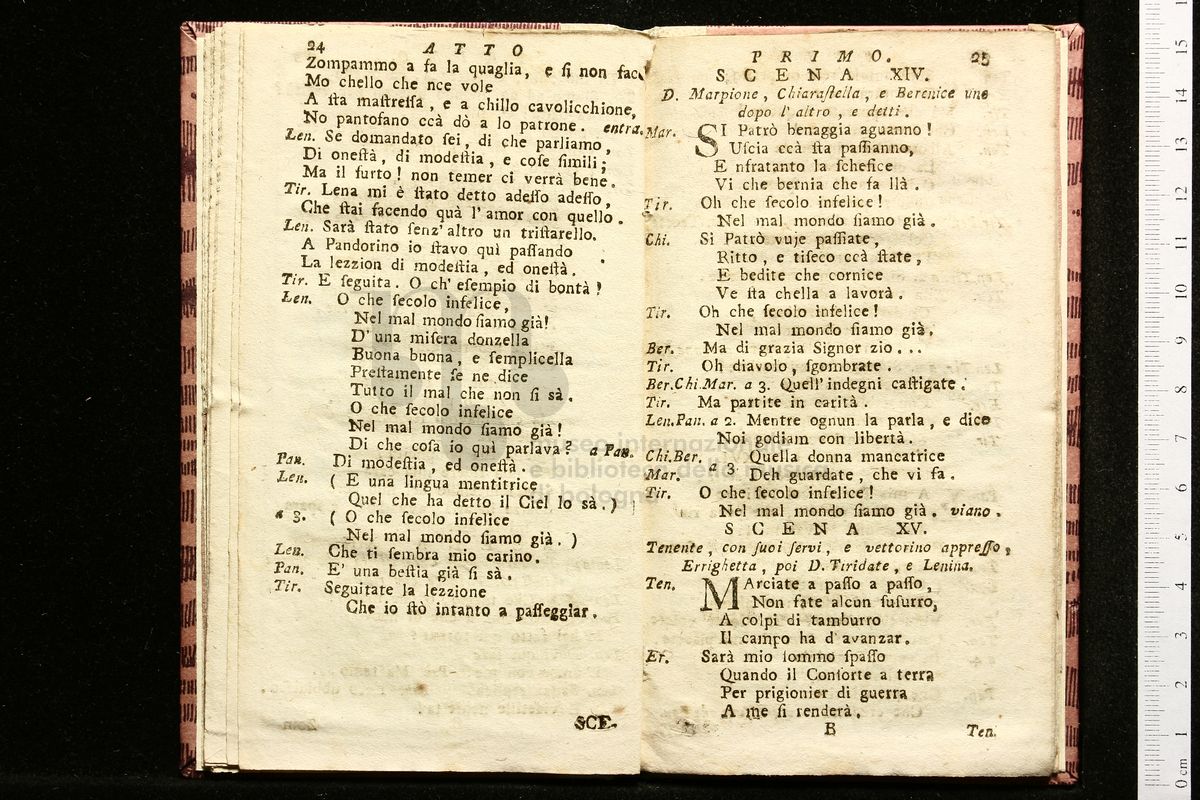 24 ATTO
Zompammo a fa la quaglia, e ſi non fac
Mo chello che nce vole
A ſta maſtreſſa, e a chillo cavolicchione,
No pantofano ccà dò a lo patrone. entra.
Len. Se domandato ſei, di che parliamo,
Di oneſtà, di modeſtia, e coſe ſimili;
Ma il furto! non temer ci verrà bene.
Tir. Lena mi è ſtato detto adeſſo adeſſo,
Che ſtai facendo quà l'amor con quello.
Len. Sarà ſtato ſenz'altro un triſtarello.
A Pandorino io ſtavo quì paſſando
La lezzion di modeſtia, ed oneſtà.
Tir. E ſeguita. O ch'eſempio di bontà!
Len. O che ſecolo infelice,
Nel mal mondo ſiamo già!
D'una miſera donzella
Buona buona, e ſemplicella
Preſtamente ſe ne dice
Tutto il mal che non ſi sà.
O che ſecolo infelice
Nel mal mondo ſiamo già!
Di che coſa io quì parlava? a Pan.
Pan. Di modeſtia, ed oneſtà.
Len. (E una lingua mentitrice
Quel che ha detto il Ciel lo sà.)
a 3. (O che ſecolo infelice
Nel mal mondo ſiamo già.)
Len. Che ti ſembra mio carino.
Pan. E' una beſtia già ſi sà.
Tir. Seguitate la lezzione
Che io ſtò intanto a paſſeggiar.
SCE-
PRIMO. 25
SCENA XIV.
D. Marpione, Chiaraſtella, e Berenice uno
dopo l'altro, e detti.
Mar. SI Patrò benaggia aguanno!
Uſcia ccà ſta paſſianno,
E nfratanto la ſcheſice
Vi che bernia che fa llà.
Tir. Oh che ſecolo infelice!
Nel mal mondo ſiamo già.
Chi. Si Patrò vuje paſſiate,
Ritto, e tiſeco ccà ſtate,
E bedite che cornice
Ve ſta chella a lavorà.
Tir. Oh che ſecolo infelice!
Nel mal mondo ſiamo già.
Ber. Ma di grazia Signor zio...
Tir. Oh diavolo, ſgombrate.
Ber.Chi.Mar. a 3. Quell'indegni caſtigate.
Tir. Ma partite in carità.
Len.Pan. a 2. Mentre ognun la parla, e dice
Noi godiam con libertà.
Chi.Ber. Quella donna mancatrice
Mar. a 3 Deh guardate, che vi fa.
Tir. O che ſecolo infelice!
Nel mal mondo ſiamo già. viano.
SCENA XV.
Tenente, con ſuoi ſervi, e vettorino appreſſo,
Errighetta, poi D. Tiridate, e Lenina.
Ten. MArciate a paſſo a paſſo,
Non fate alcun ſuſurro,
A colpi di tamburro
Il campo ha d'avanzar.
Er. Sarà mio ſommo ſpaſſo
Quando il Conſorte a terra
Per prigionier di guerra
A me ſi renderà.
B Ten.
museo internazionale
e biblioteca della musica
di bologna
0 cm 1 2 3 4 5 6 7 8 9 10 11 12 13 14 15